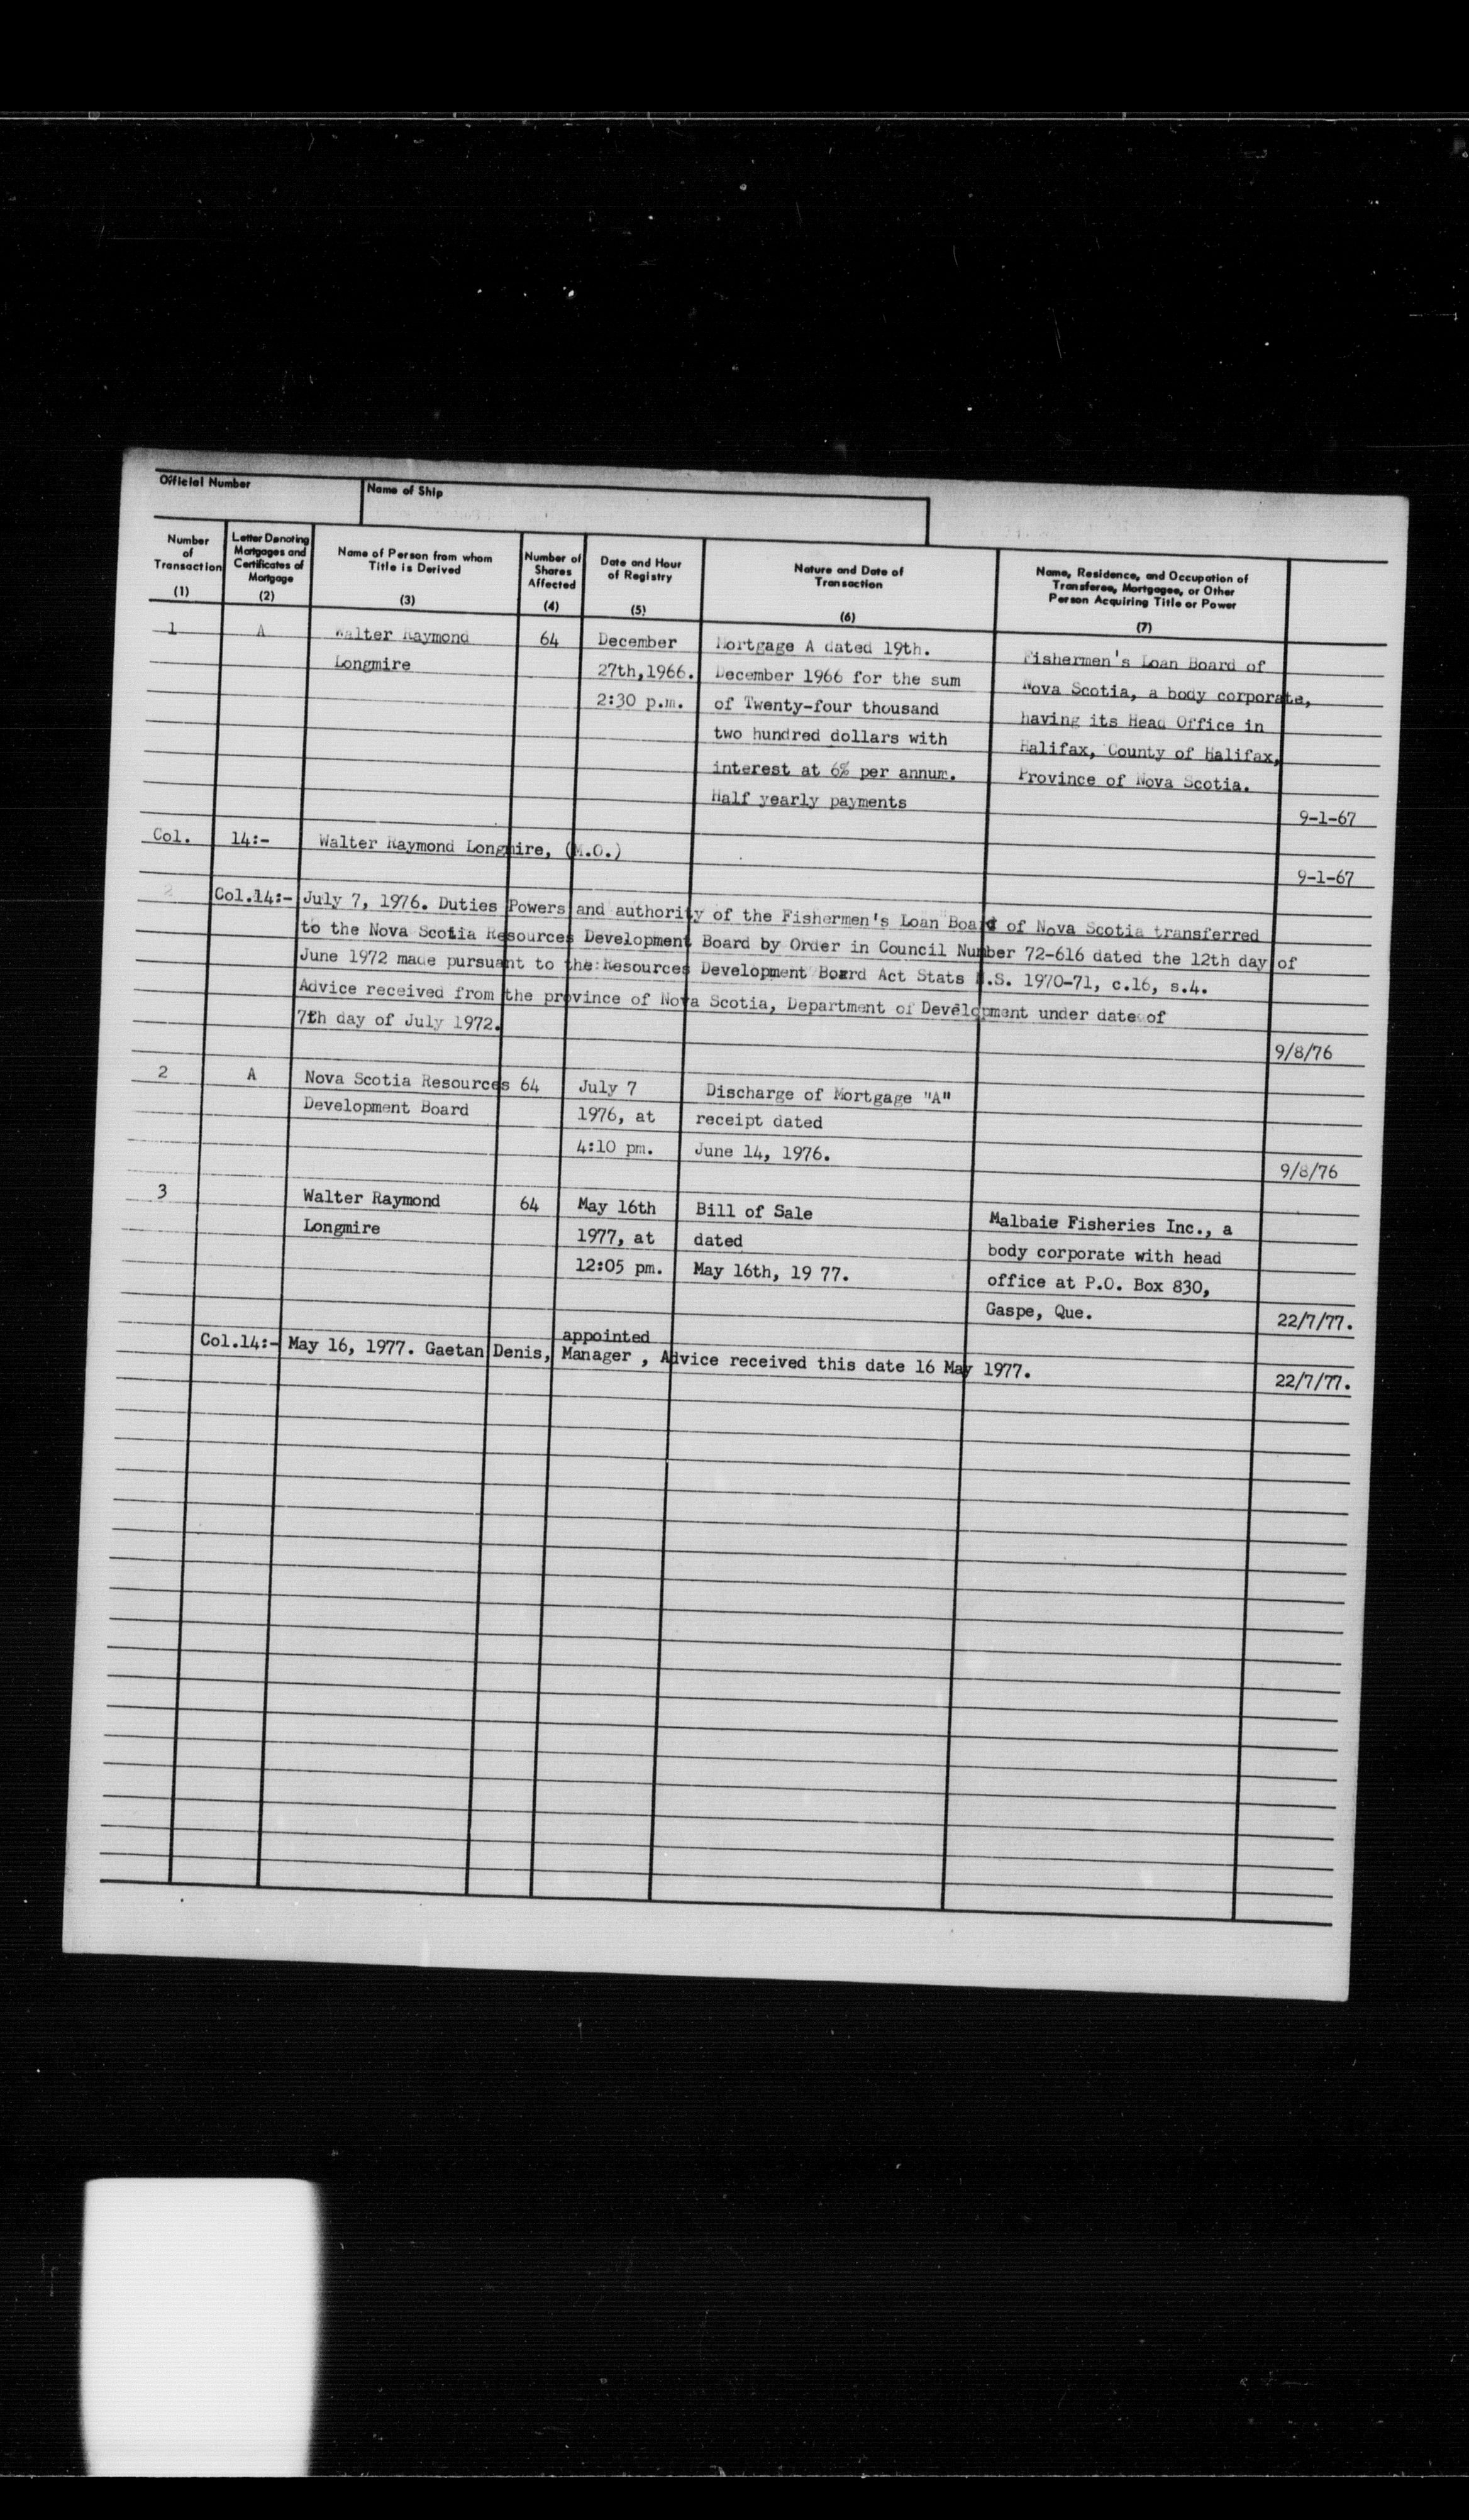 Official Number
Name of Ship
Number of Transaction (1)
Letter Denoting Mortgages and Certificates of Mortgage (2)
Name of Person from whom Title is Derived (3)
Number of Shares Affected (4)
Date and Hour of Registry (5)
Nature and Date of Transaction (6)
Name, Residence, and Occupation of Transferee, Mortgagee, or Other Person Acquiring Title or Power (7)
1 A Walter Raymond 64 December Mortgage A dated 19th. Fishermen's Loan Board of
Longmire 27th,1966. December 1966 for the sum Nova Scotia, a body corporate,
2:30 p.m. of Twenty-four thousand having its Head Office in
two hundred dollars with Halifax, County of Halifax,
interest at 6% per annum. Province of Nova Scotia.
Half yearly payments 9-1-67
Col. 14:- Walter Raymond Longmire, (M.O.)
9-1-67
2 Col.14:- July 7, 1976. Duties Powers and authority of the Fishermen's Loan Board of Nova Scotia transferred
to the Nova Scotia Resources Development Board by Order in Council Number 72-616 dated the 12th day of
June 1972 made pursuant to the Resources Development Board Act Stats N.S. 1970-71, c.16, s.4.
Advice received from the province of Nova Scotia, Department of Development under date of
7th day of July 1972.
9/8/76
2 A Nova Scotia Resources 64 July 7 Discharge of Mortgage "A"
Development Board 1976, at receipt dated
4:10 pm. June 14, 1976.
9/8/76
3 Walter Raymond 64 May 16th Bill of Sale Malbaie Fisheries Inc., a
Longmire 1977, at dated body corporate with head
12:05 pm. May 16th, 19 77. office at P.O. Box 830,
Gaspe, Que. 22/7/77.
appointed
Col.14:- May 16, 1977. Gaetan Denis, Manager , Advice received this date 16 May 1977.
22/7/77.